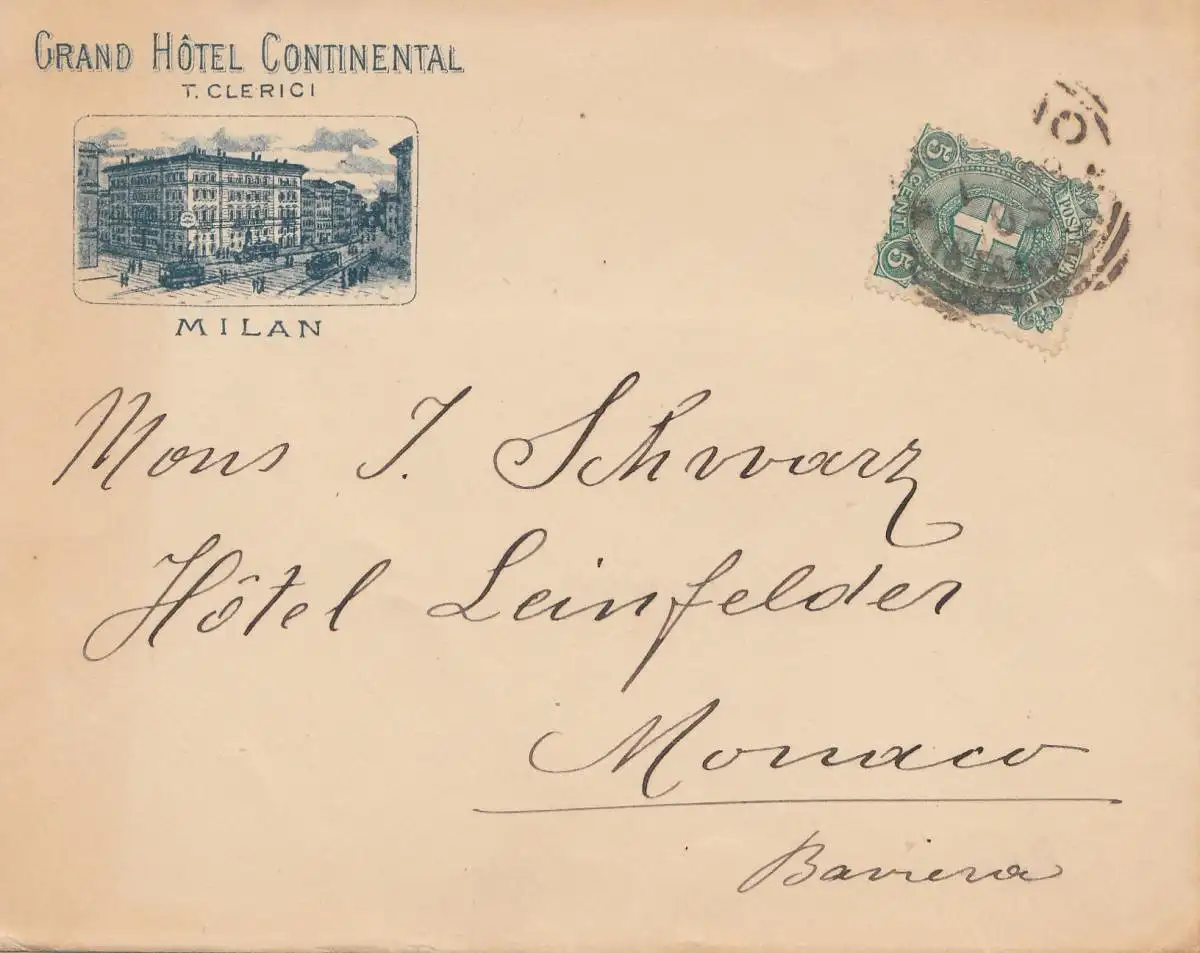 GRAND HÔTEL CONTINENTAL
T. CLERICI
MILAN
5 CENT 5
Mons J. Schwarz
Hôtel Leinfelder
Monaco
Baviera